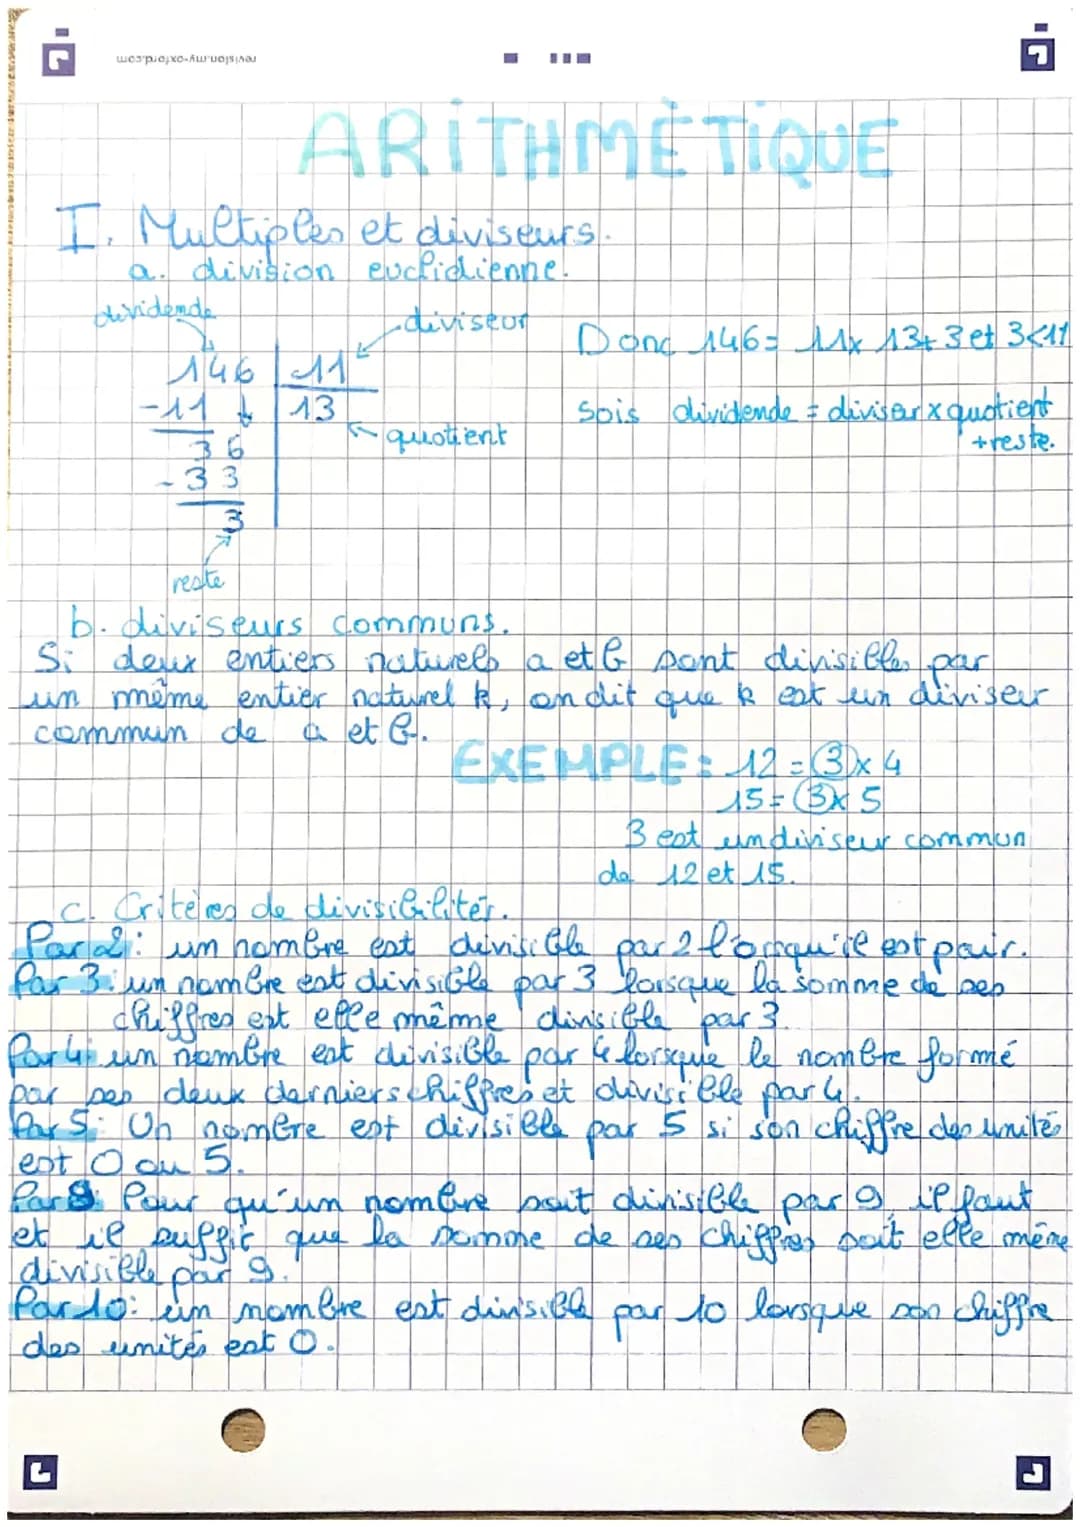 revision.my-oxford.com
ARITHMÈTIQUE
I. Multiples et diviseurs.
a. division euclidienne.
dividende
diviseur
146 11
-11 13
quotient
36
-33
3
reste
Donc 146= 11x 13+3 et 3<11
sois dividende = diviseur x quotient
+reste.
b. diviseurs communs.
Si deux entiers naturels a et b sont divisibles par
un même entier naturel k, on dit que k est un diviseur
commun de a et b.
EXEMPLE: 12 = 3 x 4
15 = 3 x 5
3 est un diviseur commun
de 12 et 15.
c. Critères de divisibilités.
Par 2: un nombre est divisible par 2 lorsqu'il est pair.
Par 3: un nombre est divisible par 3 lorsque la somme de ses
chiffres est elle même divisible par 3.
Par 4: un nombre est divisible par 4 lorsque le nombre formé
par ses deux derniers chiffres et divisible par 4.
Par 5: Un nombre est divisible par 5 si son chiffre des unités
est 0 ou 5.
Par 9: Pour qu'un nombre soit divisible par 9, il faut
et il suffit que la somme de ses chiffres soit elle même
divisible par 9.
Par 10: un nombre est divisible par 10 lorsque son chiffre
des unités est 0.